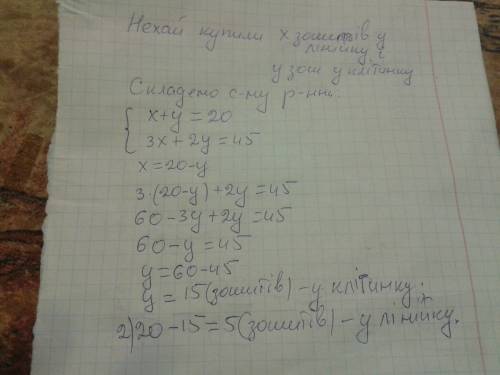 Нехай купили x зошитів у
лінійку, і
y зош у клітинку
Складемо с-му р-нь:
x+y=20
3x+2y=45
x=20-y
3·(20-y)+2y=45
60-3y+2y=45
60-y=45
y=60-45
y=15(зошитів)-у клітинку.
2)20-15=5(зошитів)-у лінійку.